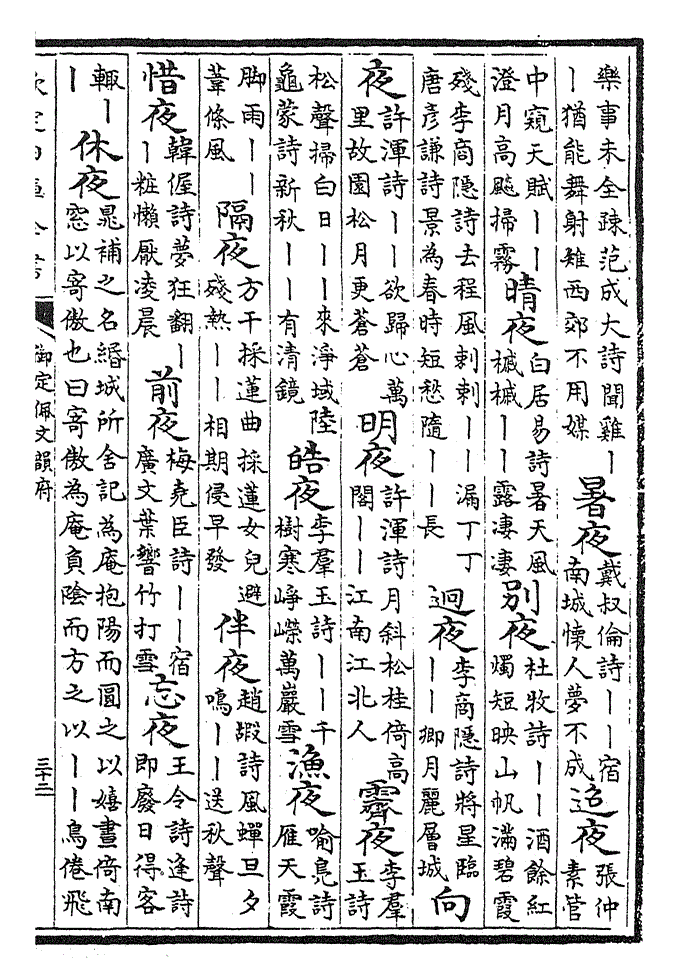 樂事未全疎范成大詩聞雞丨丨猶能舞射雉西郊不用媒 暑夜 戴叔倫詩丨丨宿南城懷人夢不成 迨夜 張仲素管
中窺天賦丨丨澄月高飈掃霧 晴夜 白居易詩暑天風槭槭丨丨露凄凄 別夜 杜牧詩丨丨酒餘紅燭短映山帆滿碧霞
殘李商隱詩去程風刺刺丨丨漏丁丁唐彥謙詩景為春時短愁隨丨丨長 迥夜 李商隱詩將星臨丨丨卿月麗層城 向
夜 許渾詩丨丨欲歸心萬里故園松月更蒼蒼 明夜 許渾詩月斜松桂倚高閣丨丨江南江北人 霽夜 李羣玉詩
松聲掃白日丨丨來淨域陸龜蒙詩新秋丨丨有清鏡 皓夜 李羣玉詩丨丨千樹寒崢嶸萬巖雪 漁夜 喻鳧詩雁天霞
脚雨丨丨葦條風 隔夜 方干採蓮曲採蓮女兒避殘熱丨丨相期侵早發 伴夜 趙嘏詩風蟬旦夕鳴丨丨送秋聲
惜夜 韓偓詩夢狂翻丨丨粧懶厭凌晨 前夜 梅堯臣詩丨丨宿廣文葉響竹打雪 忘夜 王令詩逢詩即廢日得客
輙丨丨 休夜 晁補之名緡城所舍記為庵抱陽而圓之以嬉晝倚南窓以寄傲也曰寄傲為庵負陰而方之以丨丨鳥倦飛
欽定四庫全書 御定佩文韻府 三十二